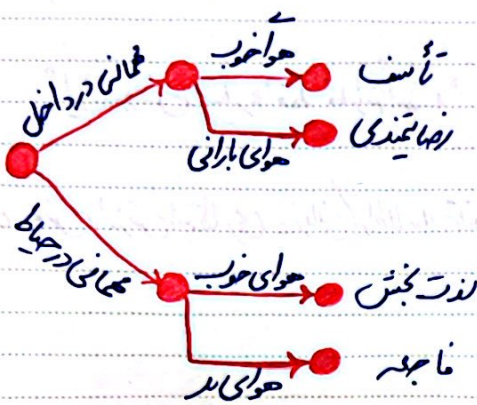 مهمانی در داخل
هوا خوب
تأسف
هوای بارانی
رضایتمندی
مهمانی در حیاط
هوای خوب
لذت بخش
هوای بد
فاجعه